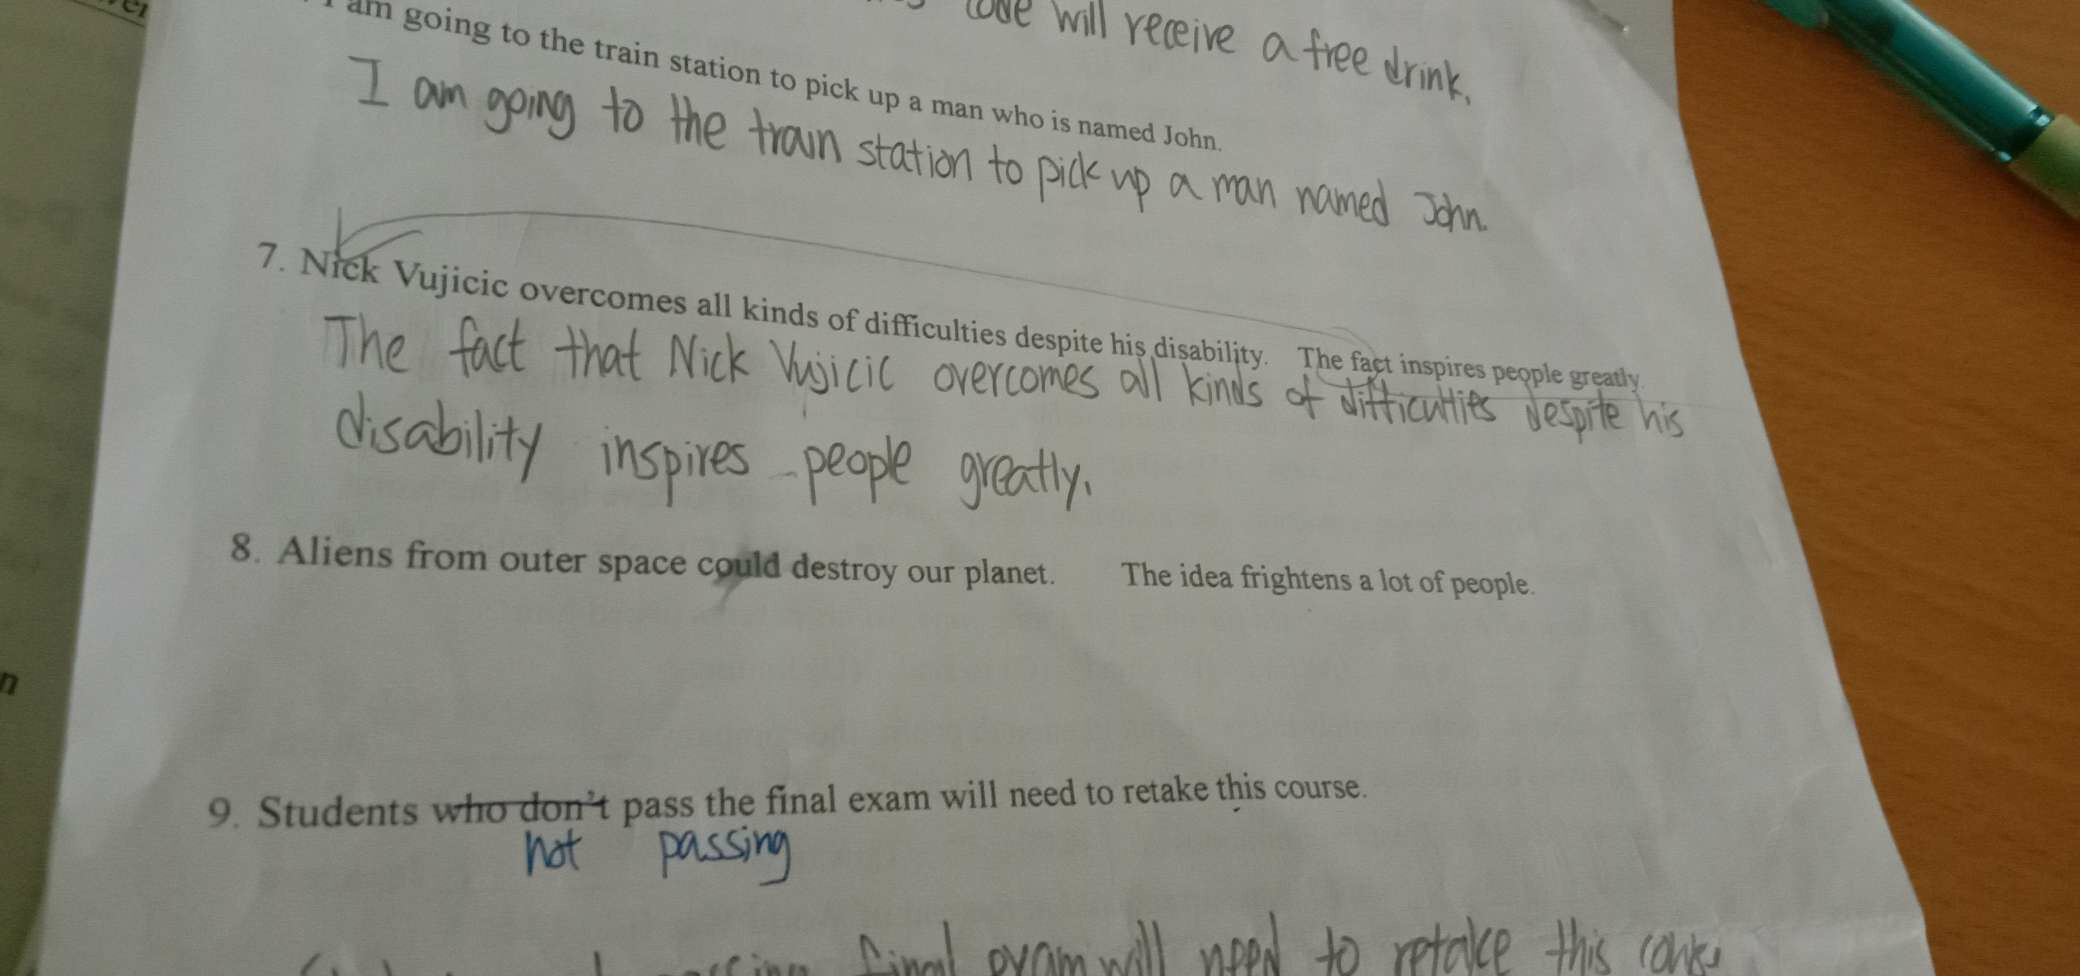 code will receive a free drink.
I am going to the train station to pick up a man who is named John.
I am going to the train station to pick up a man named John.
7. Nick Vujicic overcomes all kinds of difficulties despite his disability. The fact inspires people greatly.
The fact that Nick Vujicic overcomes all kinds of difficulties despite his
disability inspires people greatly.
8. Aliens from outer space could destroy our planet. The idea frightens a lot of people.
9. Students who don't pass the final exam will need to retake this course.
not passing
final exam will need to retake this